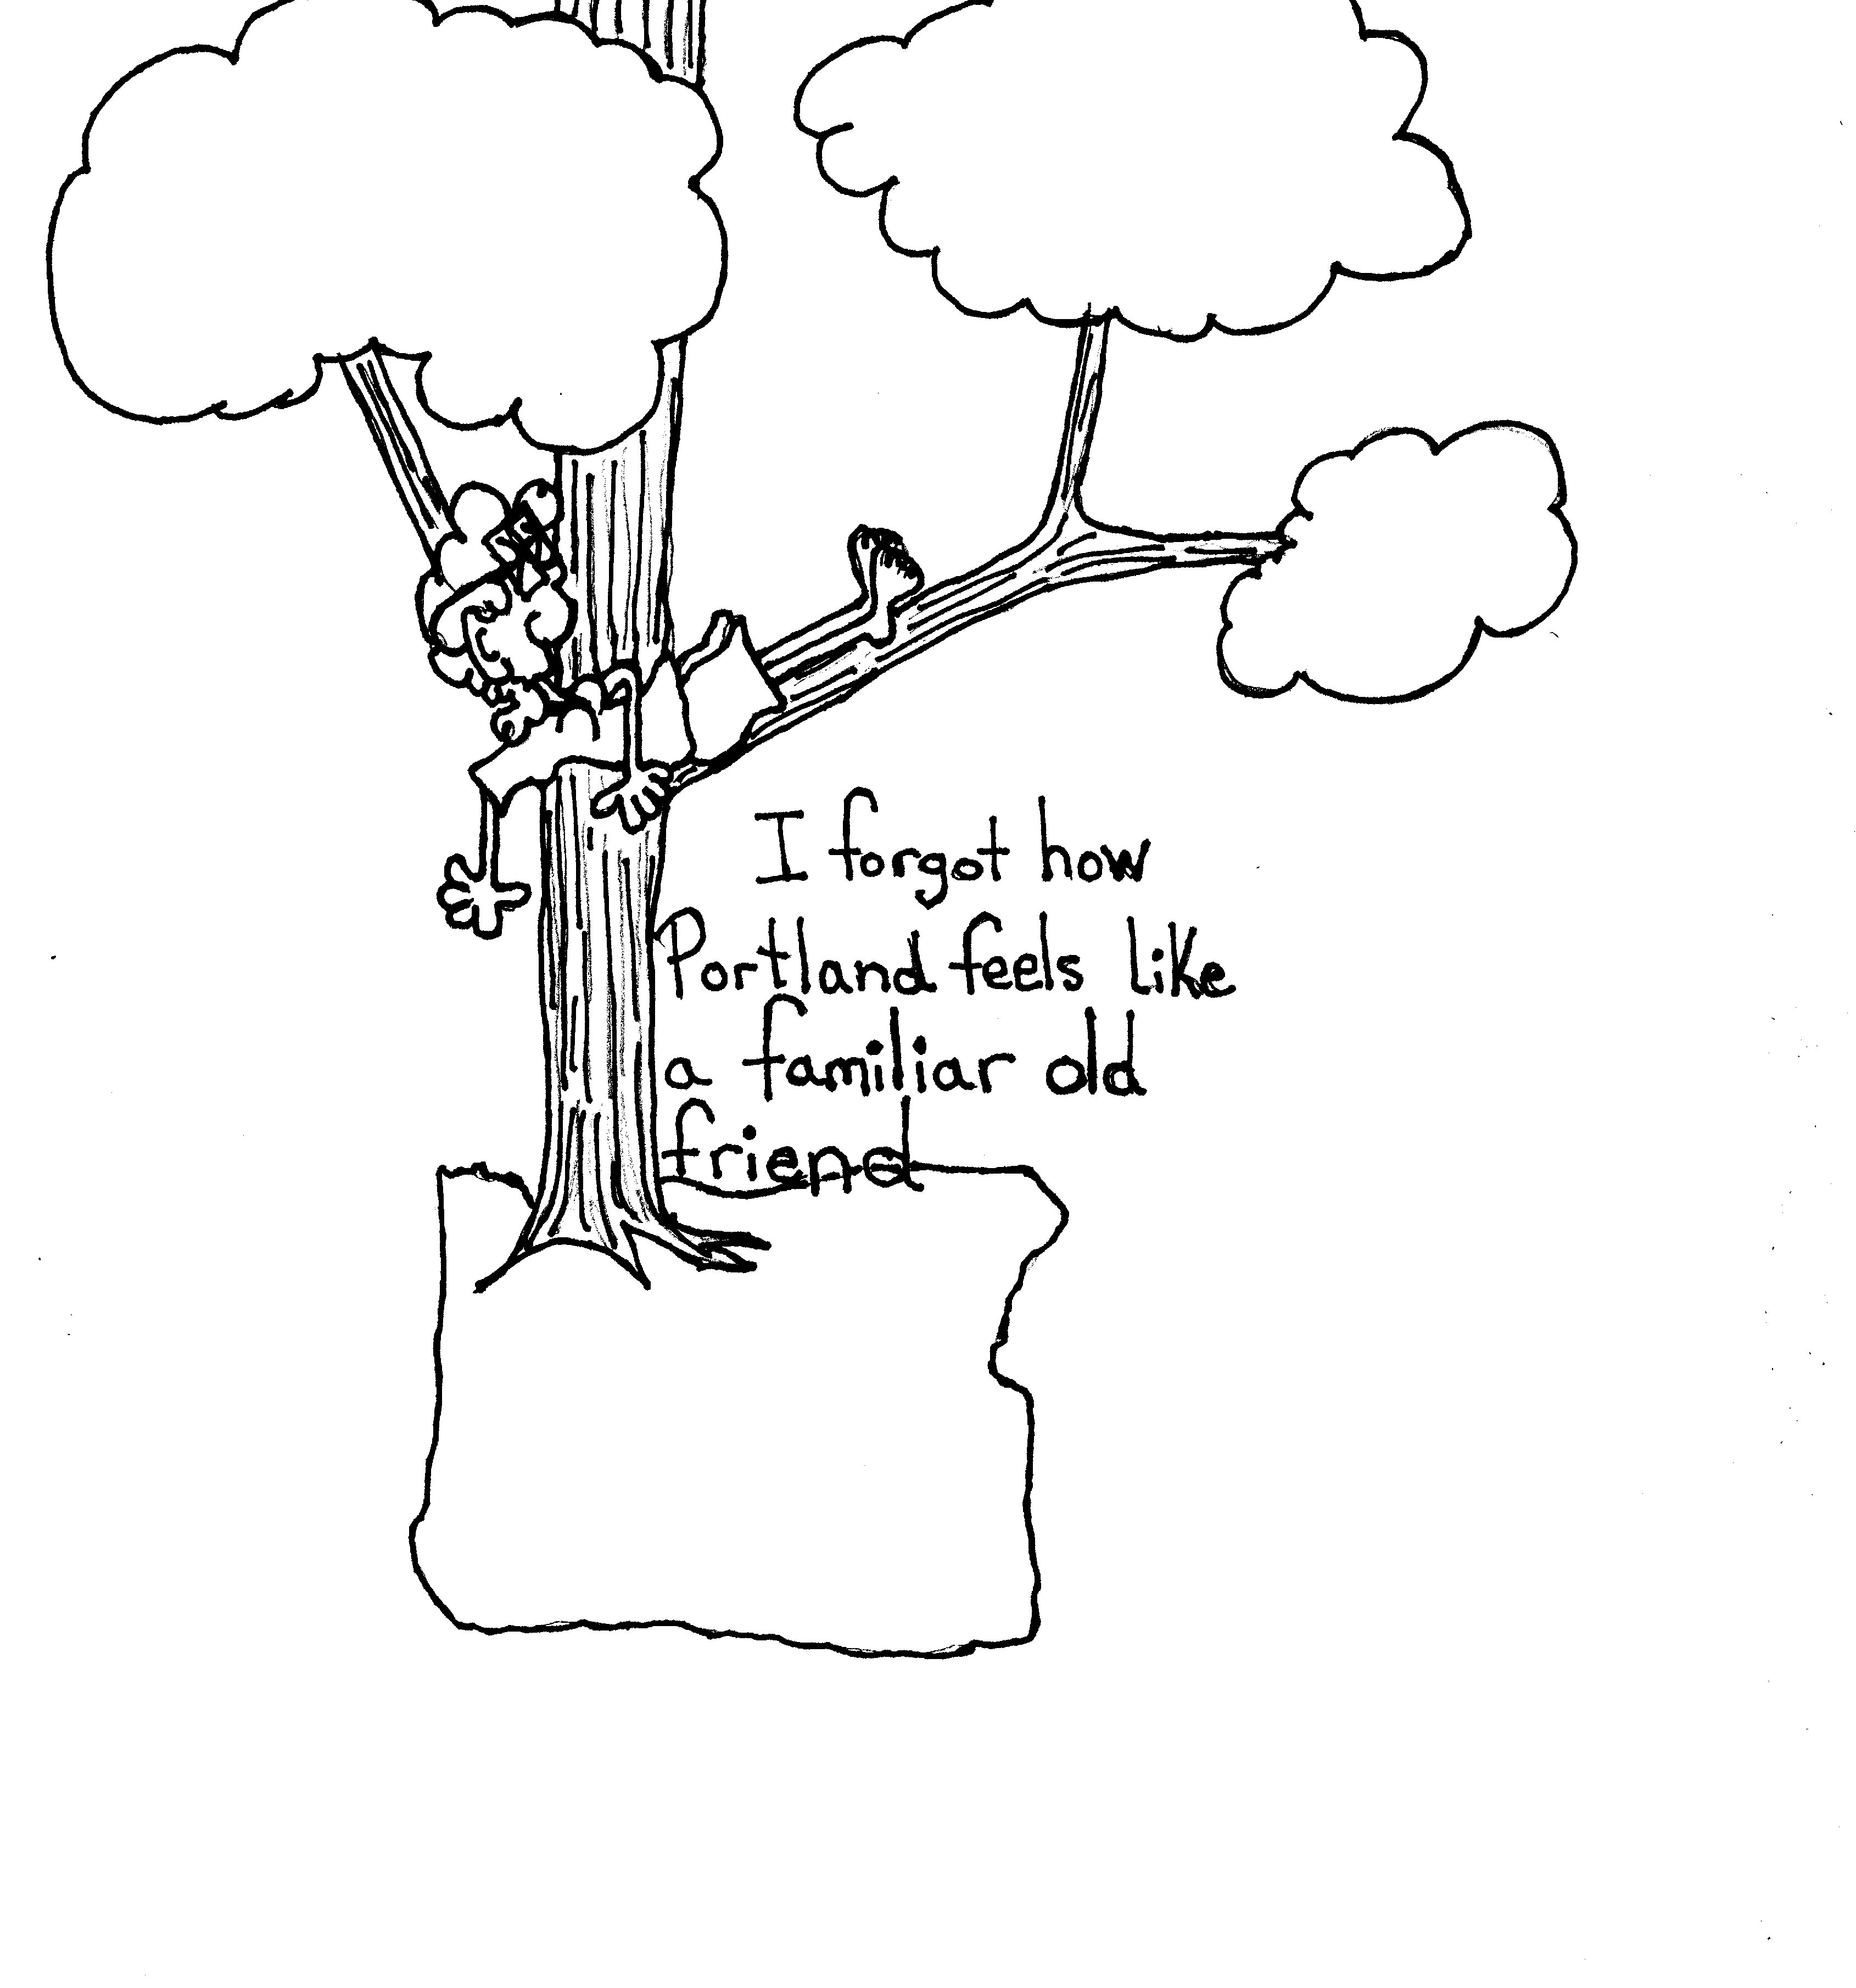 I forgot how
Portland feels like
a familiar old
friend